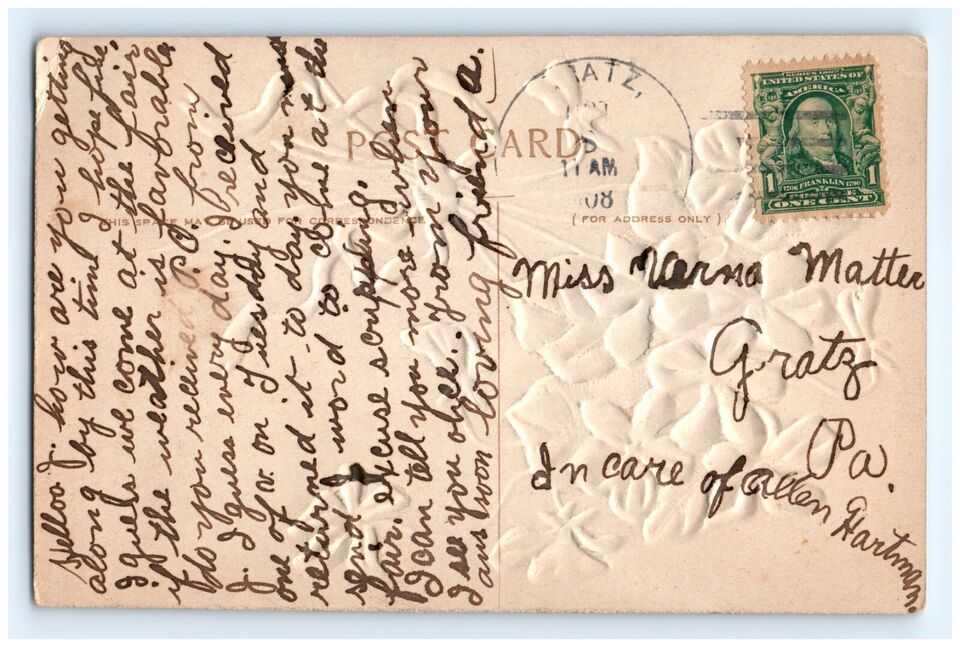 POST CARD
THIS SPACE MAY BE USED FOR CORRESPONDENCE
(FOR ADDRESS ONLY)
ATZ,
11 AM
08
SERIES 1902
UNITED STATES OF
AMERICA
1 1706 FRANKLIN 1790 1
ONE CENT
Helloo J. how are you getting
along by this time I hope fine.
I guess we come at the fair
if the weather is favorable
do you received P.C. from
J. I guess every day. I received
one of on Tuesday and
returned it to day you
send word to come at the
fair. excuse scuppling.
I can tell you more when
I see you alle.. from your
loving frienda.
ans soon
Miss Verna Matter
Gratz
Pa.
In care of Allen Hartman.